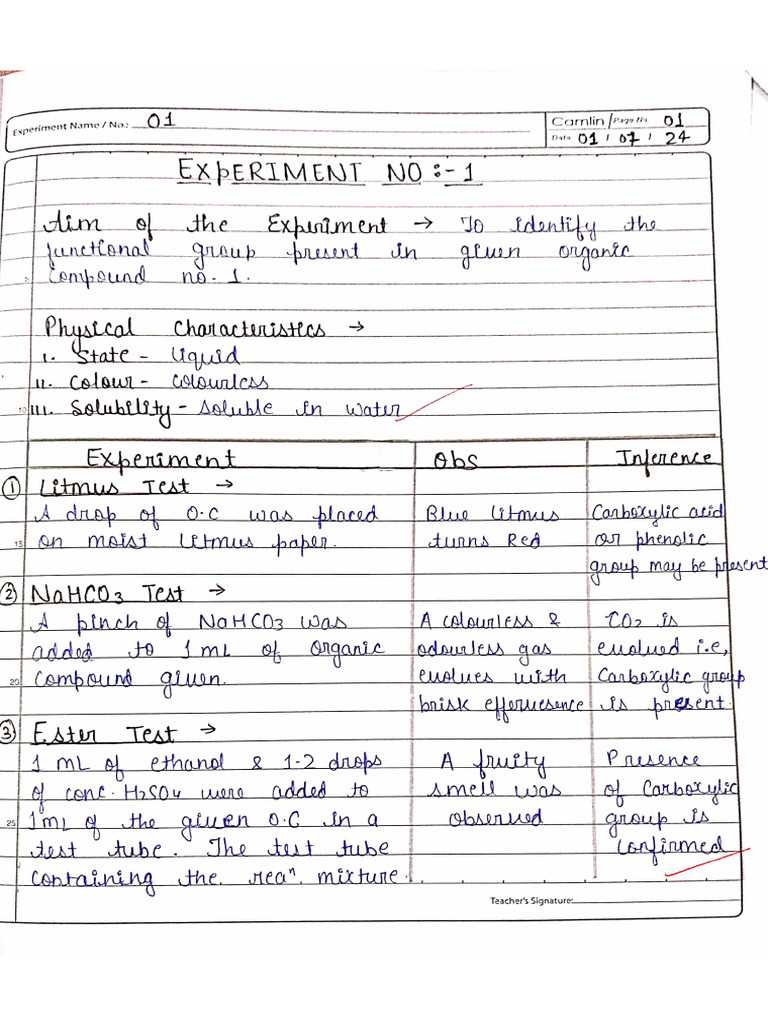 Experiment Name / No.: 01
Camlin / Page No. 01
Date 01 / 07 / 24
EXPERIMENT NO :- 1
Aim of the Experiment → To identify the
functional group present in given organic
5 compound no. 1.
Physical Characteristics →
I. State - liquid
II. Colour - Colourless
10 III. Solubility - Soluble in water
Experiment Obs Inference
① Litmus Test →
A drop of O.C was placed Blue litmus Carboxylic acid
15 on moist litmus paper. turns Red or phenolic
group may be present
② NaHCO3 Test →
A pinch of NaHCO3 was A colourless & CO2 is
added to 1 mL of organic odourless gas evolved i.e,
20 compound given. evolves with Carboxylic group
brisk effervesence is present.
③ Ester Test →
1 mL of ethanol & 1-2 drops A fruity Presence
of conc. H2SO4 were added to smell was of Carboxylic
25 1mL of the given O.C in a observed group is
test tube. The test tube confirmed
containing the rean. mixture.
Teacher's Signature: